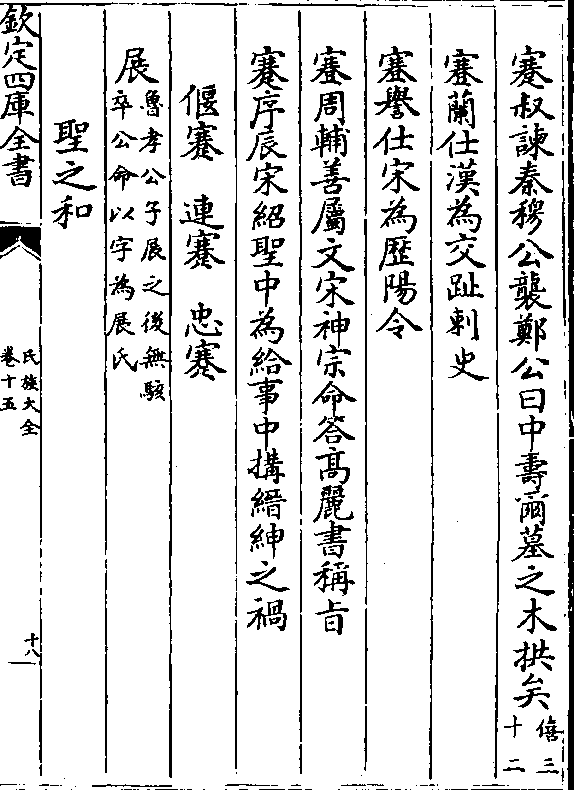 蹇叔諫秦穆公襲鄭公曰中壽爾墓之木拱矣僖三十二
蹇蘭仕漢為交趾刺史
蹇譽仕宋為歷陽令
蹇周輔善屬文宋神宗命答髙麗書稱㫖
蹇序辰宋紹聖中為給事中搆縉紳之禍
偃蹇 連蹇 忠蹇
展魯孝公子展之後無駭卒公命以字為展氏
聖之和
欽定四庫全書
氏族大全
卷十五
十八